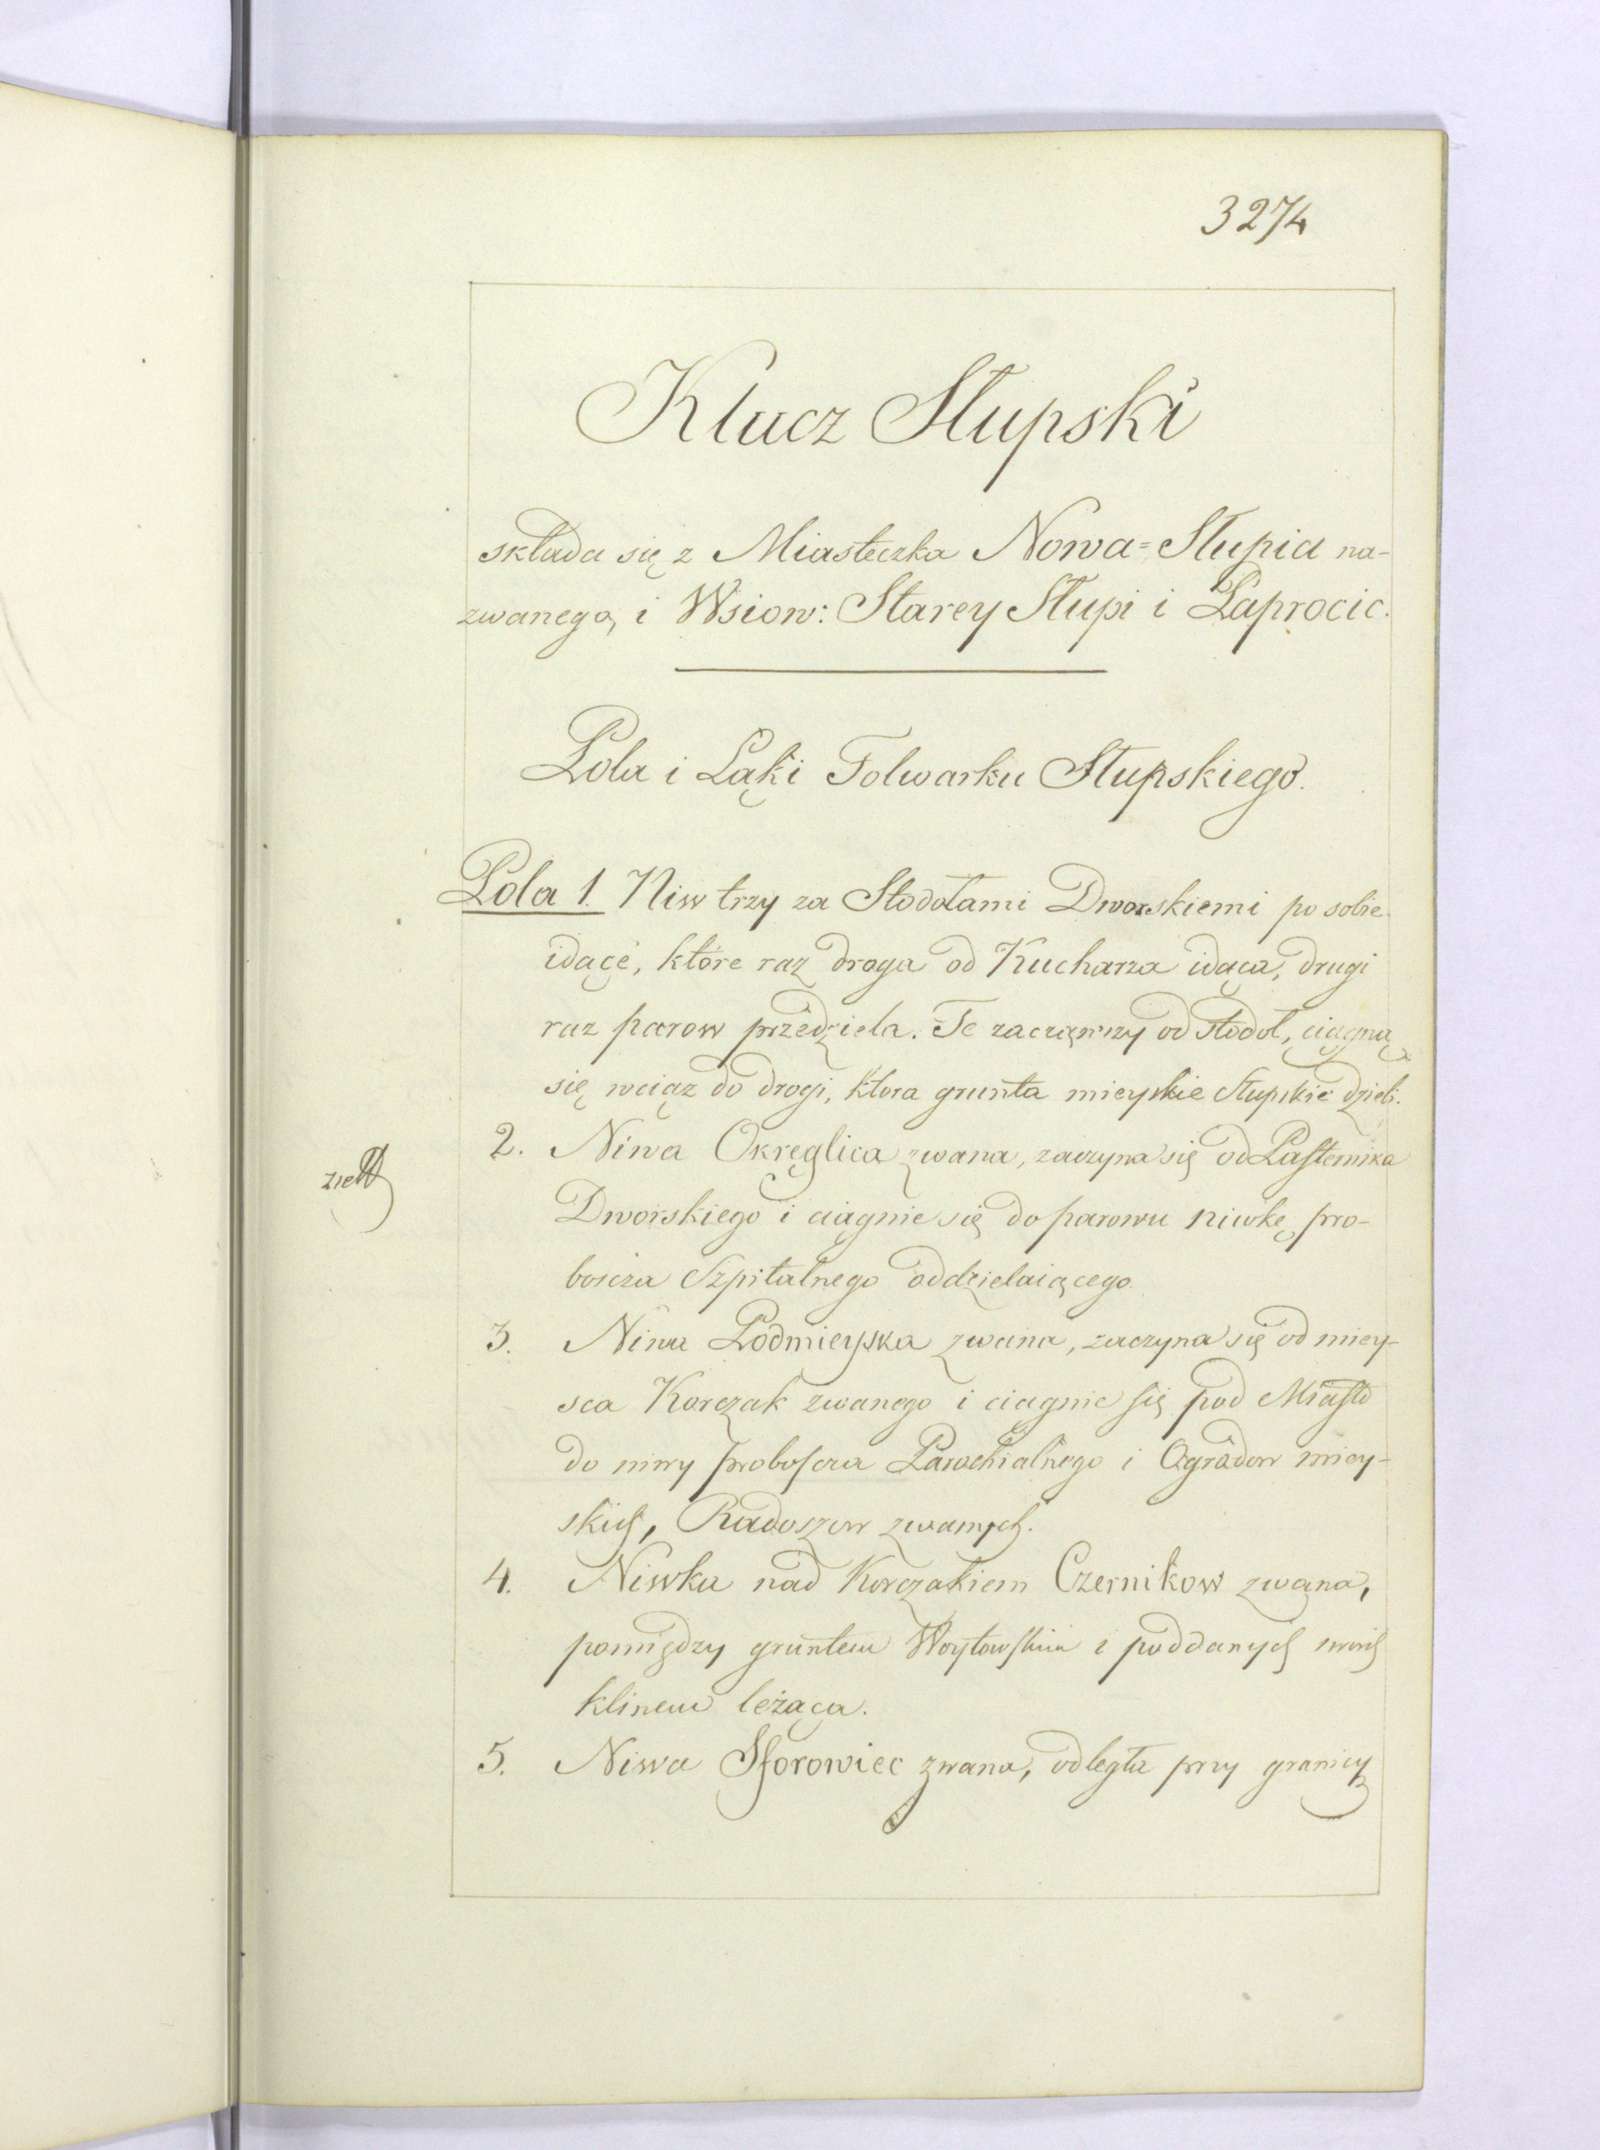 3274
Klucz Słupski
składa się z Miasteczka Nowa=Słupia na-
zwanego, i Wsiow: Starey Słupi i Paprocic.
Pola i Łąki Folwarku Słupskiego.
Pola 1. Niw trzy za Stodołami Dworskiemi po sobie
idące, które raz droga od Kucharza idąca, drugi
raz parow przedziela. Te zacząwszy od stodoł, ciągną
się wciąz do drogi, ktora grunta mieyskie Słupskie dzieli.
2. Niwa Okręglica zwana, zaczyna się od Pasternika
Dworskiego i ciagnie się do parowu niwkę pro-
boscza Szpitalnego oddzielaiącego.
3. Niwa Podmieyska zwana, zaczyna się od miey-
sca Korczak zwanego i ciagnie się pod Miasto
do niwy proboscza Parochialnego i Ogradow miey-
skich, Radoszow zwanych.
4. Niwka nad Korczakiem Czernikow zwana,
pomiędzy gruntem Woytowskim i poddanych swoich
klinem leżąca.
5. Niwa Sforowiec zwana, odległa przy granicy